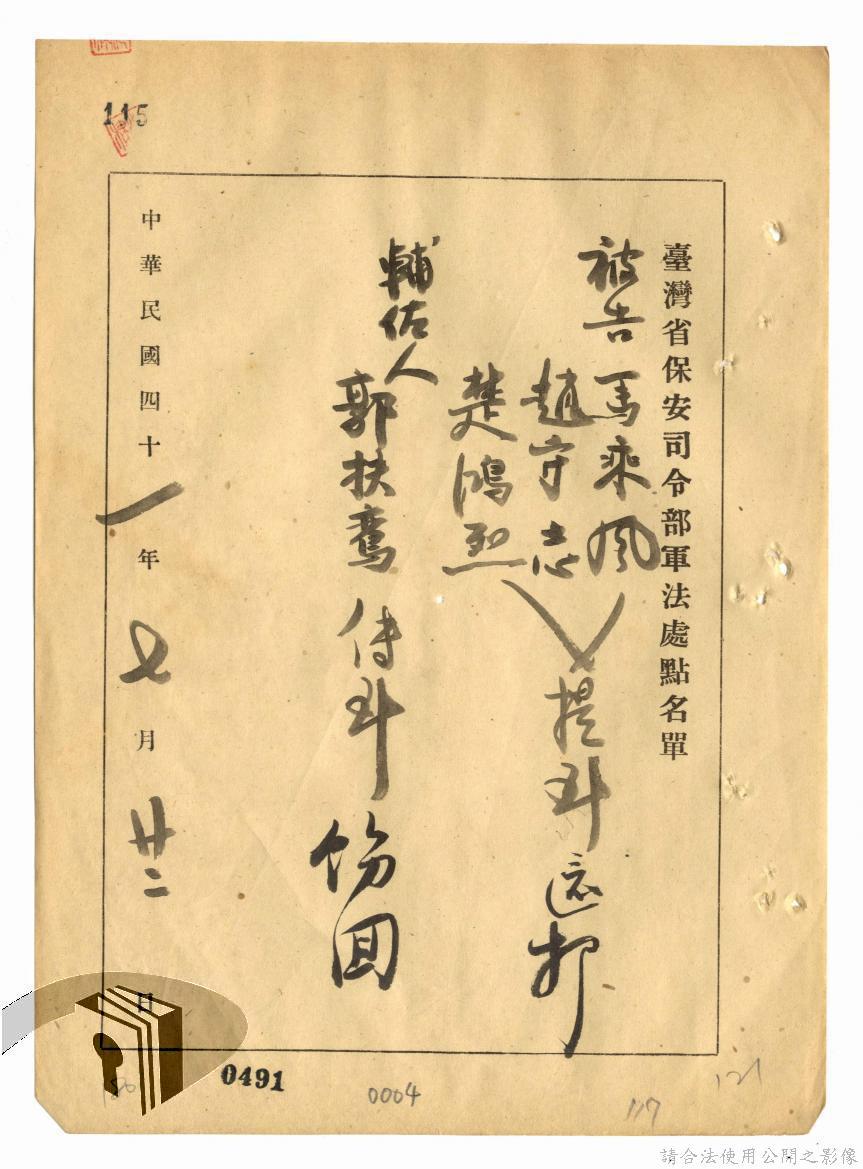 115
臺灣省保安司令部軍法處點名單
被告 馬乘風
趙守志 提到 還押
楚鴻烈
輔佐人
郭扶鸞 傳到 飭回
中華民國四十一年七月廿二日
0491
0004
117
121
請合法使用公開之影像